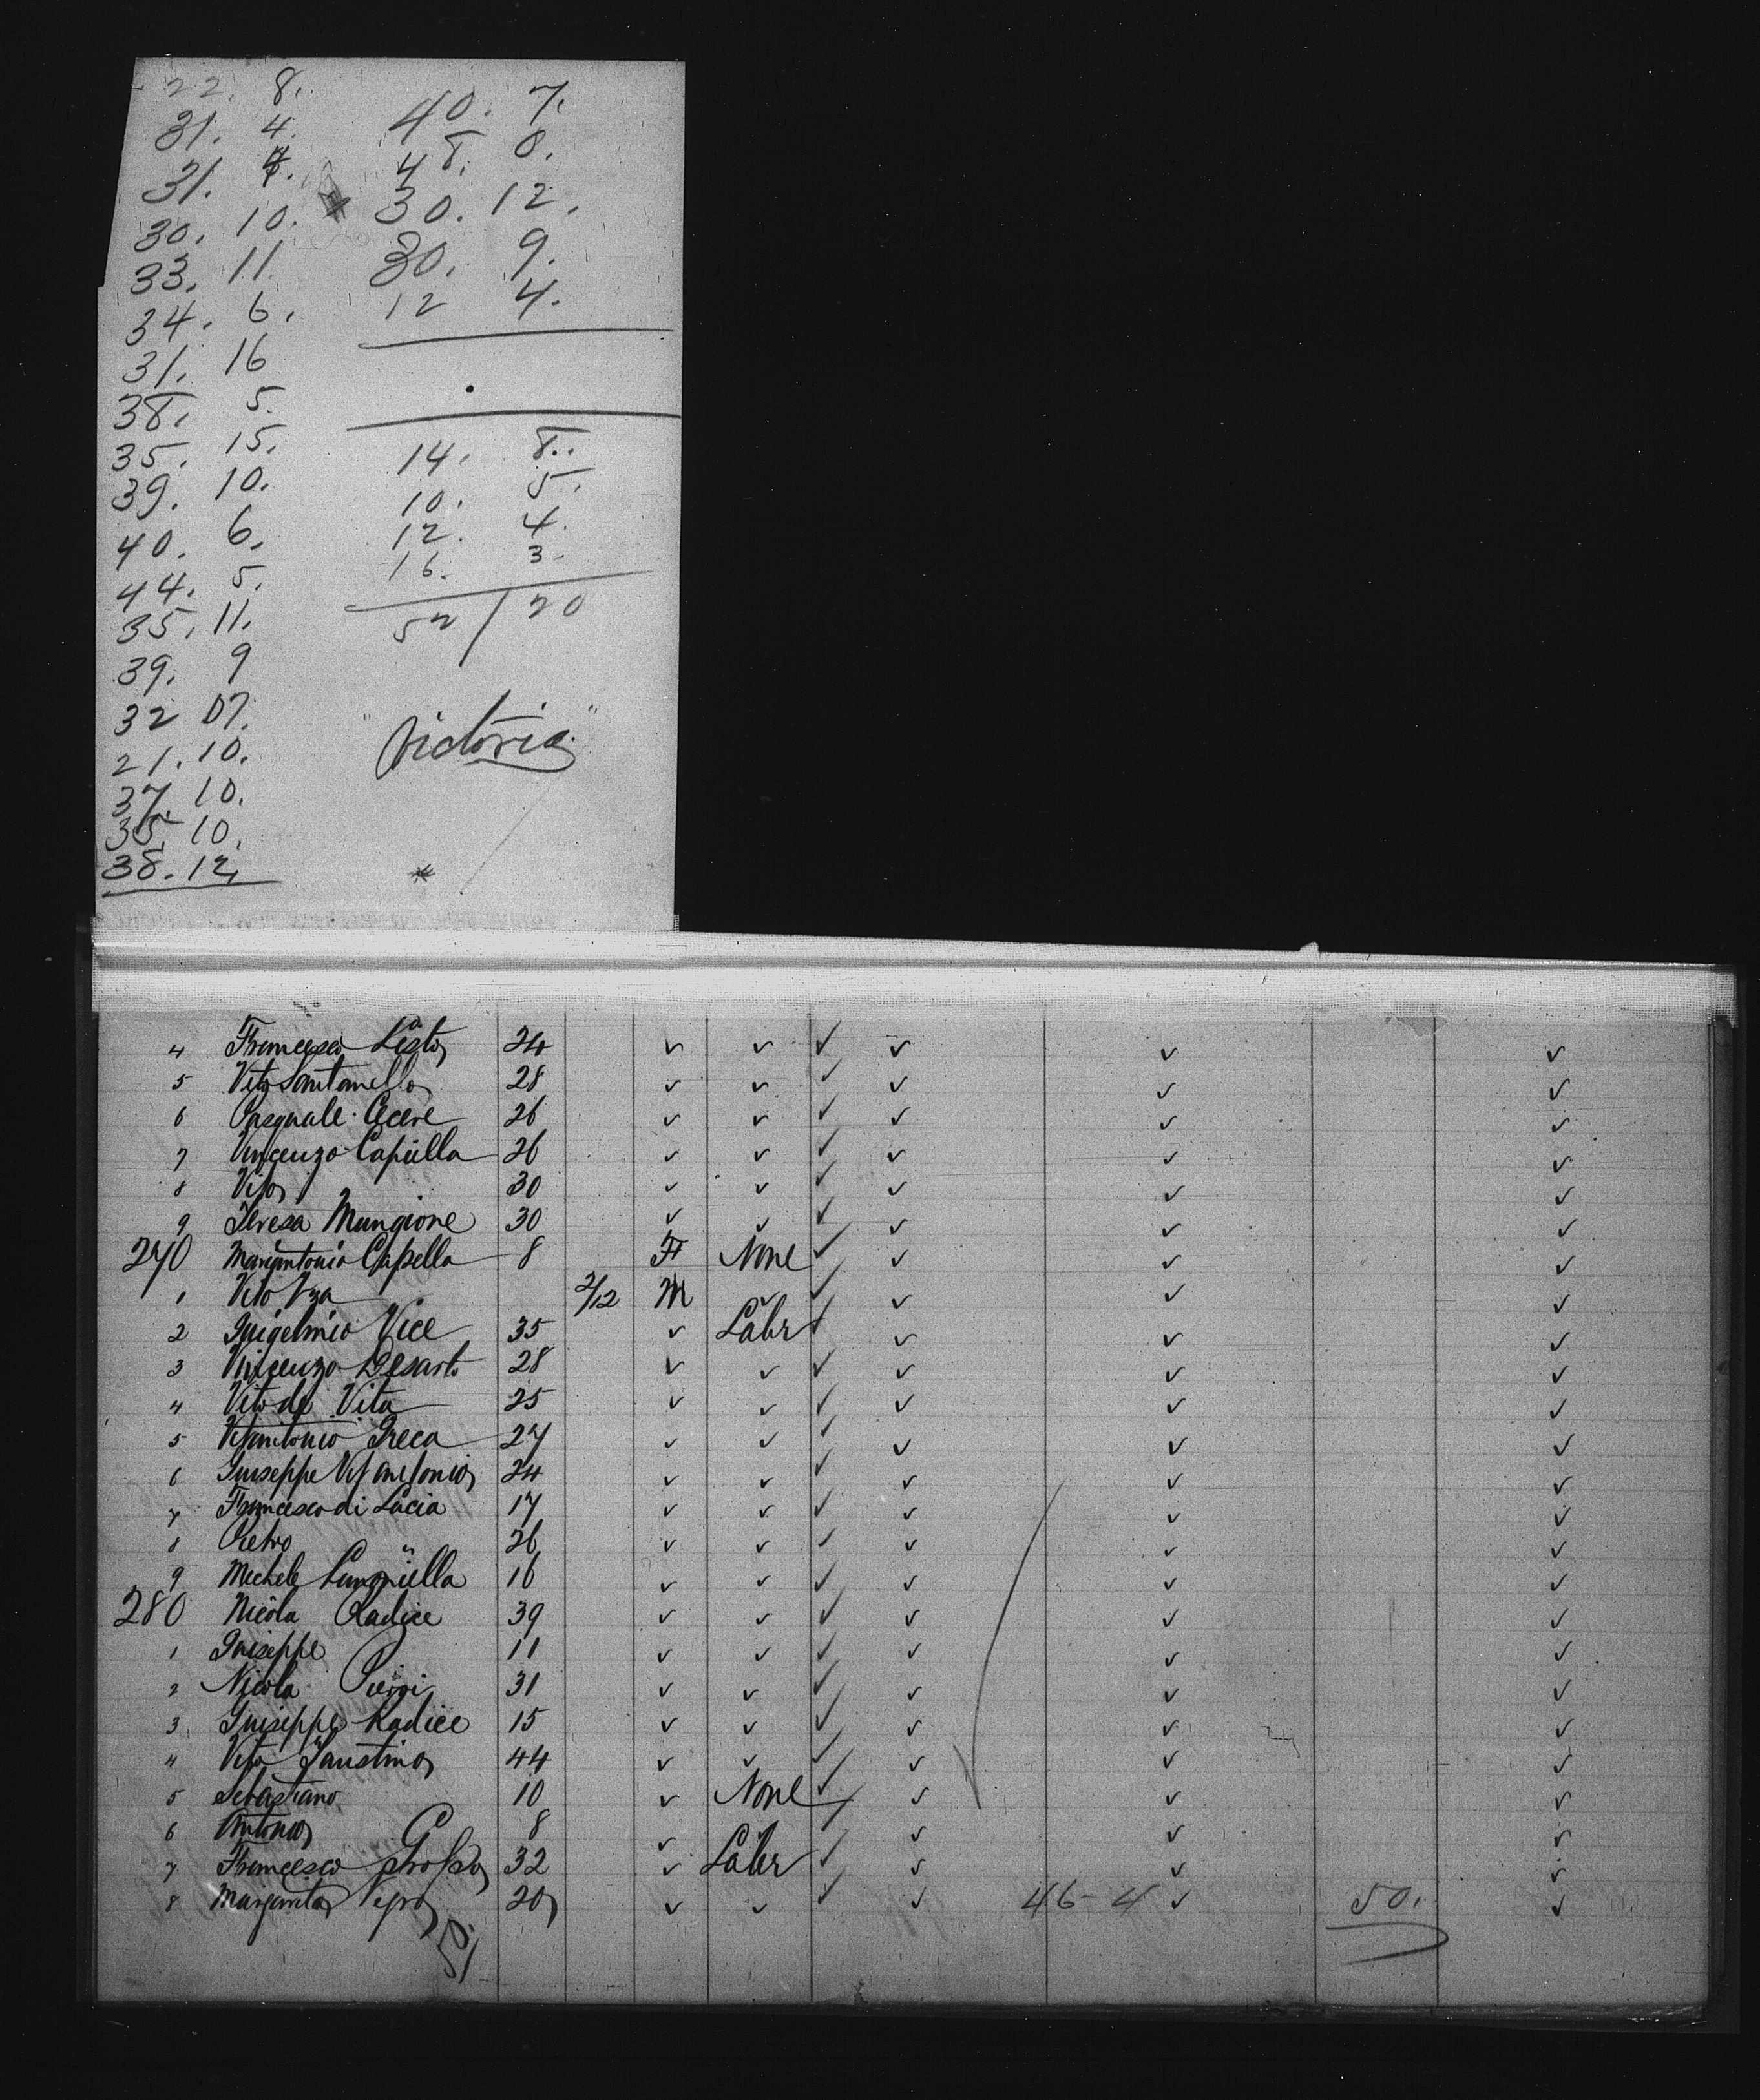 22. 8.
31. 4.
31. 4.
30. 10.
33. 11
34. 6.
31. 16
38. 5.
35. 15.
39. 10.
40. 6.
44. 5.
35. 11.
39. 9
32 07.
21. 10.
37. 10.
35. 10.
38. 12,
40. 7.
48. 8.
30. 12.
30. 9.
12 4.
14. 8..
10. 5.
12. 4.
16. 3.
52 / 20
"Victoria"
4 Francesco Listo 24 ✓ ✓ ✓ ✓ ✓ ✓
5 Vito Santanello 28 ✓ ✓ ✓ ✓ ✓ ✓
6 Pasquale Cecere 26 ✓ ✓ ✓ ✓ ✓ ✓
7 Vincenzo Capúlla 26 ✓ ✓ ✓ ✓ ✓ ✓
8 Vito 30 ✓ ✓ ✓ ✓ ✓ ✓
9 Teresa Mungione 30 ✓ ✓ ✓ ✓ ✓ ✓
270 Mariantonia Capella 8 F None ✓ ✓ ✓ ✓
1 Vito 2/12 M ✓ ✓ ✓ ✓ ✓
2 Vice 35 ✓ Labr ✓ ✓ ✓ ✓
3 Vincenzo Desarto 28 ✓ ✓ ✓ ✓ ✓ ✓
4 Vito de Vita 25 ✓ ✓ ✓ ✓ ✓ ✓
5 Vitantonio Greca 27 ✓ ✓ ✓ ✓ ✓ ✓
6 Guiseppe Vitantonio 24 ✓ ✓ ✓ ✓ ✓ ✓
7 Francesco di Lucia 17 ✓ ✓ ✓ ✓ ✓ ✓
8 Pietro 26 ✓ ✓ ✓ ✓ ✓ ✓
9 Michele 16 ✓ ✓ ✓ ✓ ✓ ✓
280 Nicola Radice 39 ✓ ✓ ✓ ✓ ✓ ✓
1 Guiseppe 11 ✓ ✓ ✓ ✓ ✓ ✓
2 Nicola 31 ✓ ✓ ✓ ✓ ✓ ✓
3 Guiseppe Radice 15 ✓ ✓ ✓ ✓ ✓ ✓
4 Vito Faustino 44 ✓ ✓ ✓ ✓ ✓ ✓
5 Sebastiano 10 ✓ None ✓ ✓ ✓ ✓
6 Antonio 8 ✓ ✓ ✓ ✓ ✓ ✓
7 Francesco Grosso 32 ✓ Labr ✓ ✓ ✓ ✓
8 Margarita 20 ✓ ✓ ✓ ✓ 46-4 ✓ 50. ✓